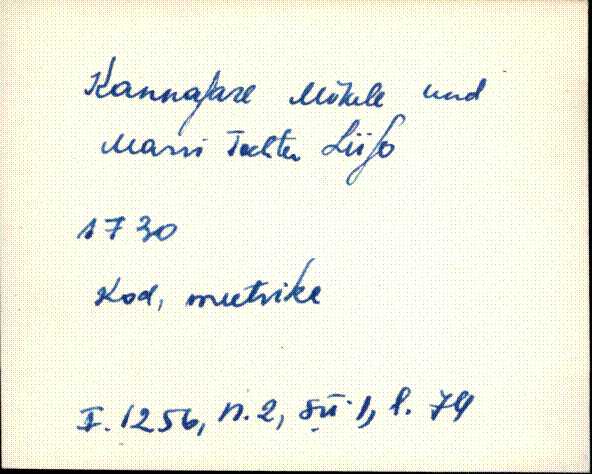 Kannafare Mihkle und
Marri Tochter Liifo
1730
Kod, meetrika
F. 1256, n. 2, sü. 1, l. 74